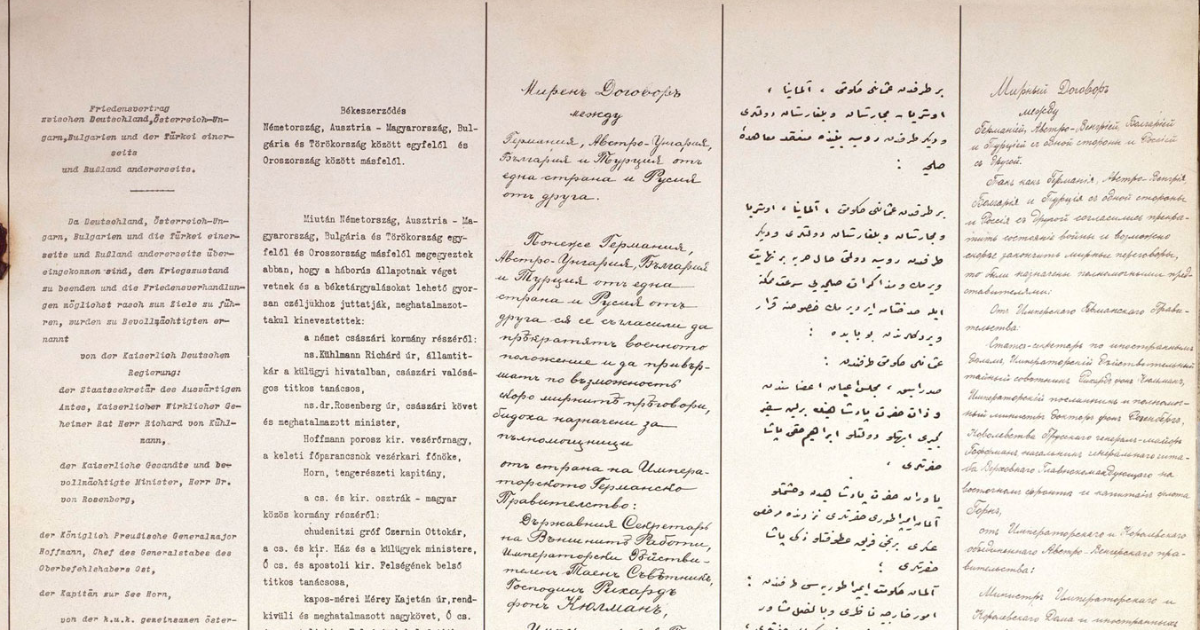 Friedensvertrag
zwischen Deutschland,Österreich-Un-
garn,Bulgarien und der Türkei einer-
seits
und Rußland andererseits.
Da Deutschland, Österreich-Un-
garn, Bulgarien und die Türkei einer-
seits und Rußland andererseits über-
eingekommen sind, den Kriegszustand
zu beenden und die Friedensverhandlun-
gen möglichst rasch zum Ziele zu füh-
ren, wurden zu Bevollmächtigten er-
nannt
von der Kaiserlich Deutschen
Regierung:
der Staatssekretär des Auswärtigen
Amtes, Kaiserlicher Wirklicher Ge-
heimer Rat Herr Richard von Kühl-
mann,
der Kaiserliche Gesandte und be-
vollmächtigte Minister, Herr Dr.
von Rosenberg,
der Königlich Preußische Generalmajor
Hoffmann, Chef des Generalstabes des
Oberbefehlshabers Ost,
der Kapitän zur See Horn,
von der k.u.k. gemeinsamen öster-
Békeszerződés
Németország, Ausztria - Magyarország, Bul-
gária és Törökország között egyfelől és
Oroszország között másfelől.
Miután Németország, Ausztria - Ma-
gyarország, Bulgária és Törökország egy-
felől és Oroszország másfelől megegyeztek
abban, hogy a háborús állapotnak véget
vetnek és a béketárgyalásokat lehető gyor-
san céljukhoz juttatják, meghatalmazot-
takul kineveztettek:
a német császári kormány részéről:
ns.Kühlmann Richárd úr, államtit-
kár a külügyi hivatalban, császári valósá-
gos titkos tanácsos,
ns.dr.Rosenberg úr, császári követ
és meghatalmazott minister,
Hoffmann porosz kir. vezérőrnagy,
a keleti főparancsnok vezérkari főnöke,
Horn, tengerészeti kapitány,
a cs. és kir. osztrák - magyar
közös kormány részéről:
chudenitzi gróf Czernin Ottokár,
a cs. és kir. Ház és a külügyek ministere,
Ő cs. és apostoli kir. Felségének belső
titkos tanácsosa,
kapos-mérei Mérey Kajetán úr,rend-
kívüli és meghatalmazott nagykövet, Ő cs.
Миренъ Договоръ
между
Германия, Австро-Унгария,
България и Турция отъ
една страна и Русия
отъ друга.
Понеже Германия,
Австро-Унгария, България
и Турция отъ една
страна и Русия отъ
друга ся се съгласили да
прѣкратятъ военното
положение и да привър-
шатъ по възможность
скоро мирнитѣ прѣговори,
бидоха назначени за
пълномощници
отъ страна на Импера-
торското Германско
Правителство:
Държавния Секретарь
на Външнитѣ Работи,
Императорски Дѣйстви-
теленъ Таенъ Съвѣтникъ,
Господинъ Рихардъ
фонъ Кюлманъ,
بر طرفدن عثمانلی حکومتی ، آلمانیا ،
اوستریا مجارستان و بلغارستان دولتلری
ودیگر طرفدن روسیه بیننده منعقد معاهدهٔ
صلحیه :
بر طرفدن عثمانلی حکومتی ، آلمانیا ، اوستریا
ومجارستان و بلغارستان دولتلری ودیگر
طرفدن روسیه دولتی حال حربه بر نهایت
ویرمك ومذاکرات صلحیه یی سرعت ممکنه
عثمانلی حکومتی طرفندن :
Мирный Договоръ
между
Германіей, Австро-Венгріей, Болгаріей
и Турціей съ одной стороны и Россіей
съ другой.
Такъ какъ Германія, Австро-Венгрія,
Болгарія и Турція съ одной стороны
и Россія съ другой согласились прекра-
тить состояніе войны и возможно
скорѣе закончить мирные переговоры,
то были назначены полномочными пред-
ставителями:
Отъ Имперскаго Германскаго Прави-
тельства:
Статсъ-секретарь по иностраннымъ
дѣламъ, Императорскій Дѣйствительный
тайный совѣтникъ Рихардъ фонъ Кюльманъ,
Императорскій посланникъ и полномоч-
ный министръ докторъ фонъ Розенбергъ,
Королевства Прусскаго генералъ-майоръ
Гофманъ, начальникъ генеральнаго шта-
ба Верховнаго Главнокомандующаго на
восточномъ фронтѣ и капитанъ флота
Горнъ,
отъ Императорскаго и Королевскаго
общаго Австро-Венгерскаго пра-
вительства:
Министръ Императорскаго и
Королевскаго Дома и иностранныхъ